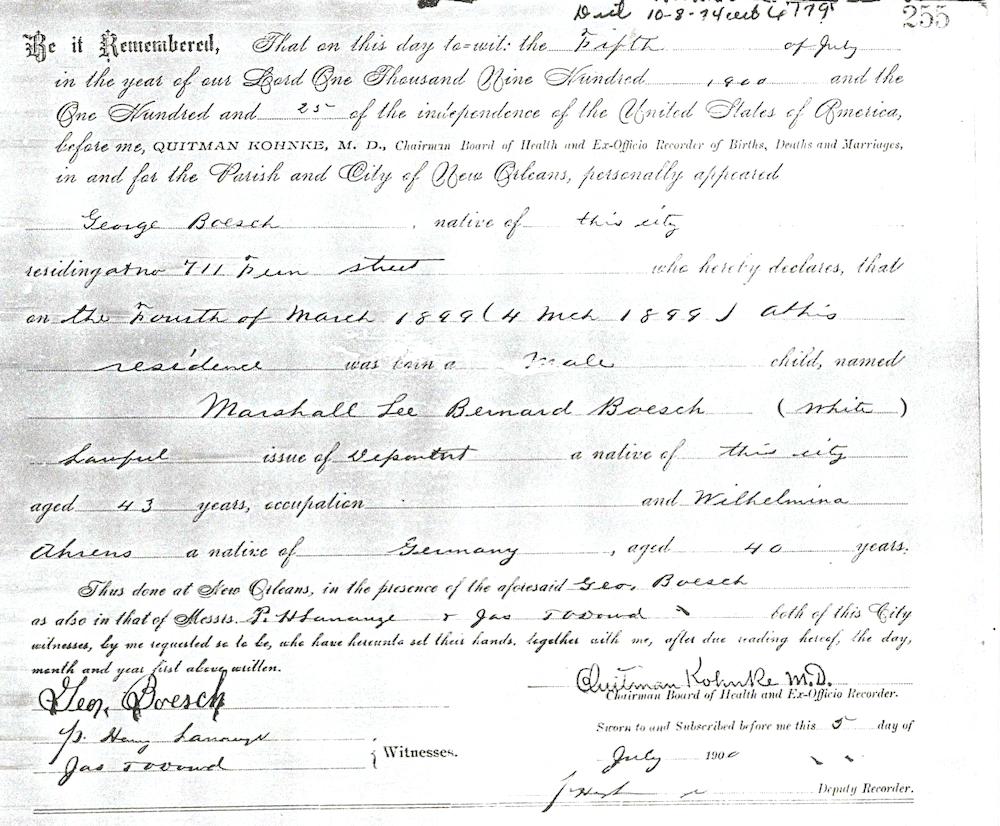 255
10-8-74
Be it Remembered, That on this day to=wit: the Fifth of July
in the year of our Lord One Thousand Nine Hundred 1900 and the
One Hundred and 25 of the independence of the United States of America,
before me, QUITMAN KOHNKE, M. D., Chairman Board of Health and Ex-Officio Recorder of Births, Deaths and Marriages,
in and for the Parish and City of New Orleans, personally appeared
George Boesch , native of this city
residing at no 711 Fern street who hereby declares, that
on the Fourth of March 1899 (4 Mch 1899) At his
residence was born a Male child, named
Marshall Lee Bernard Boesch (White)
Lawful issue of Deponent a native of this city
aged 43 years, occupation and Wilhelmina
Ahrens a native of Germany , aged 40 years.
Thus done at New Orleans, in the presence of the aforesaid Geo. Boesch
as also in that of Messrs. P. H Lanauze & Jas T O Dowd both of this City
witnesses, by me requested so to be, who have hereunto set their hands, together with me, after due reading hereof, the day,
month and year first above written.
Geo, Boesch
Quitman Kohnke M.D.
Chairman Board of Health and Ex-Officio Recorder.
P. Henry Lanauze
Jas T O Dowd
Witnesses.
Sworn to and Subscribed before me this 5 day of
July 1900
Deputy Recorder.